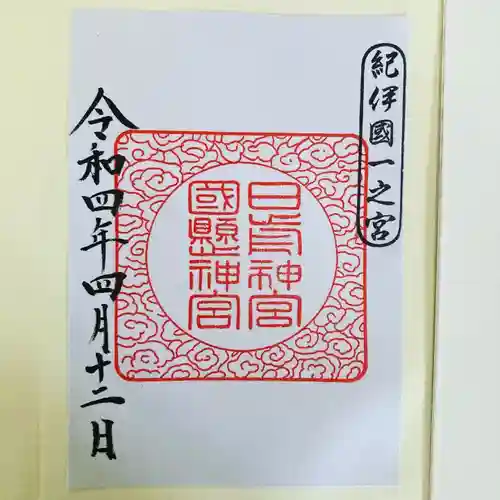 紀伊國一之宮
日前神宮
國懸神宮
令和四年四月十二日